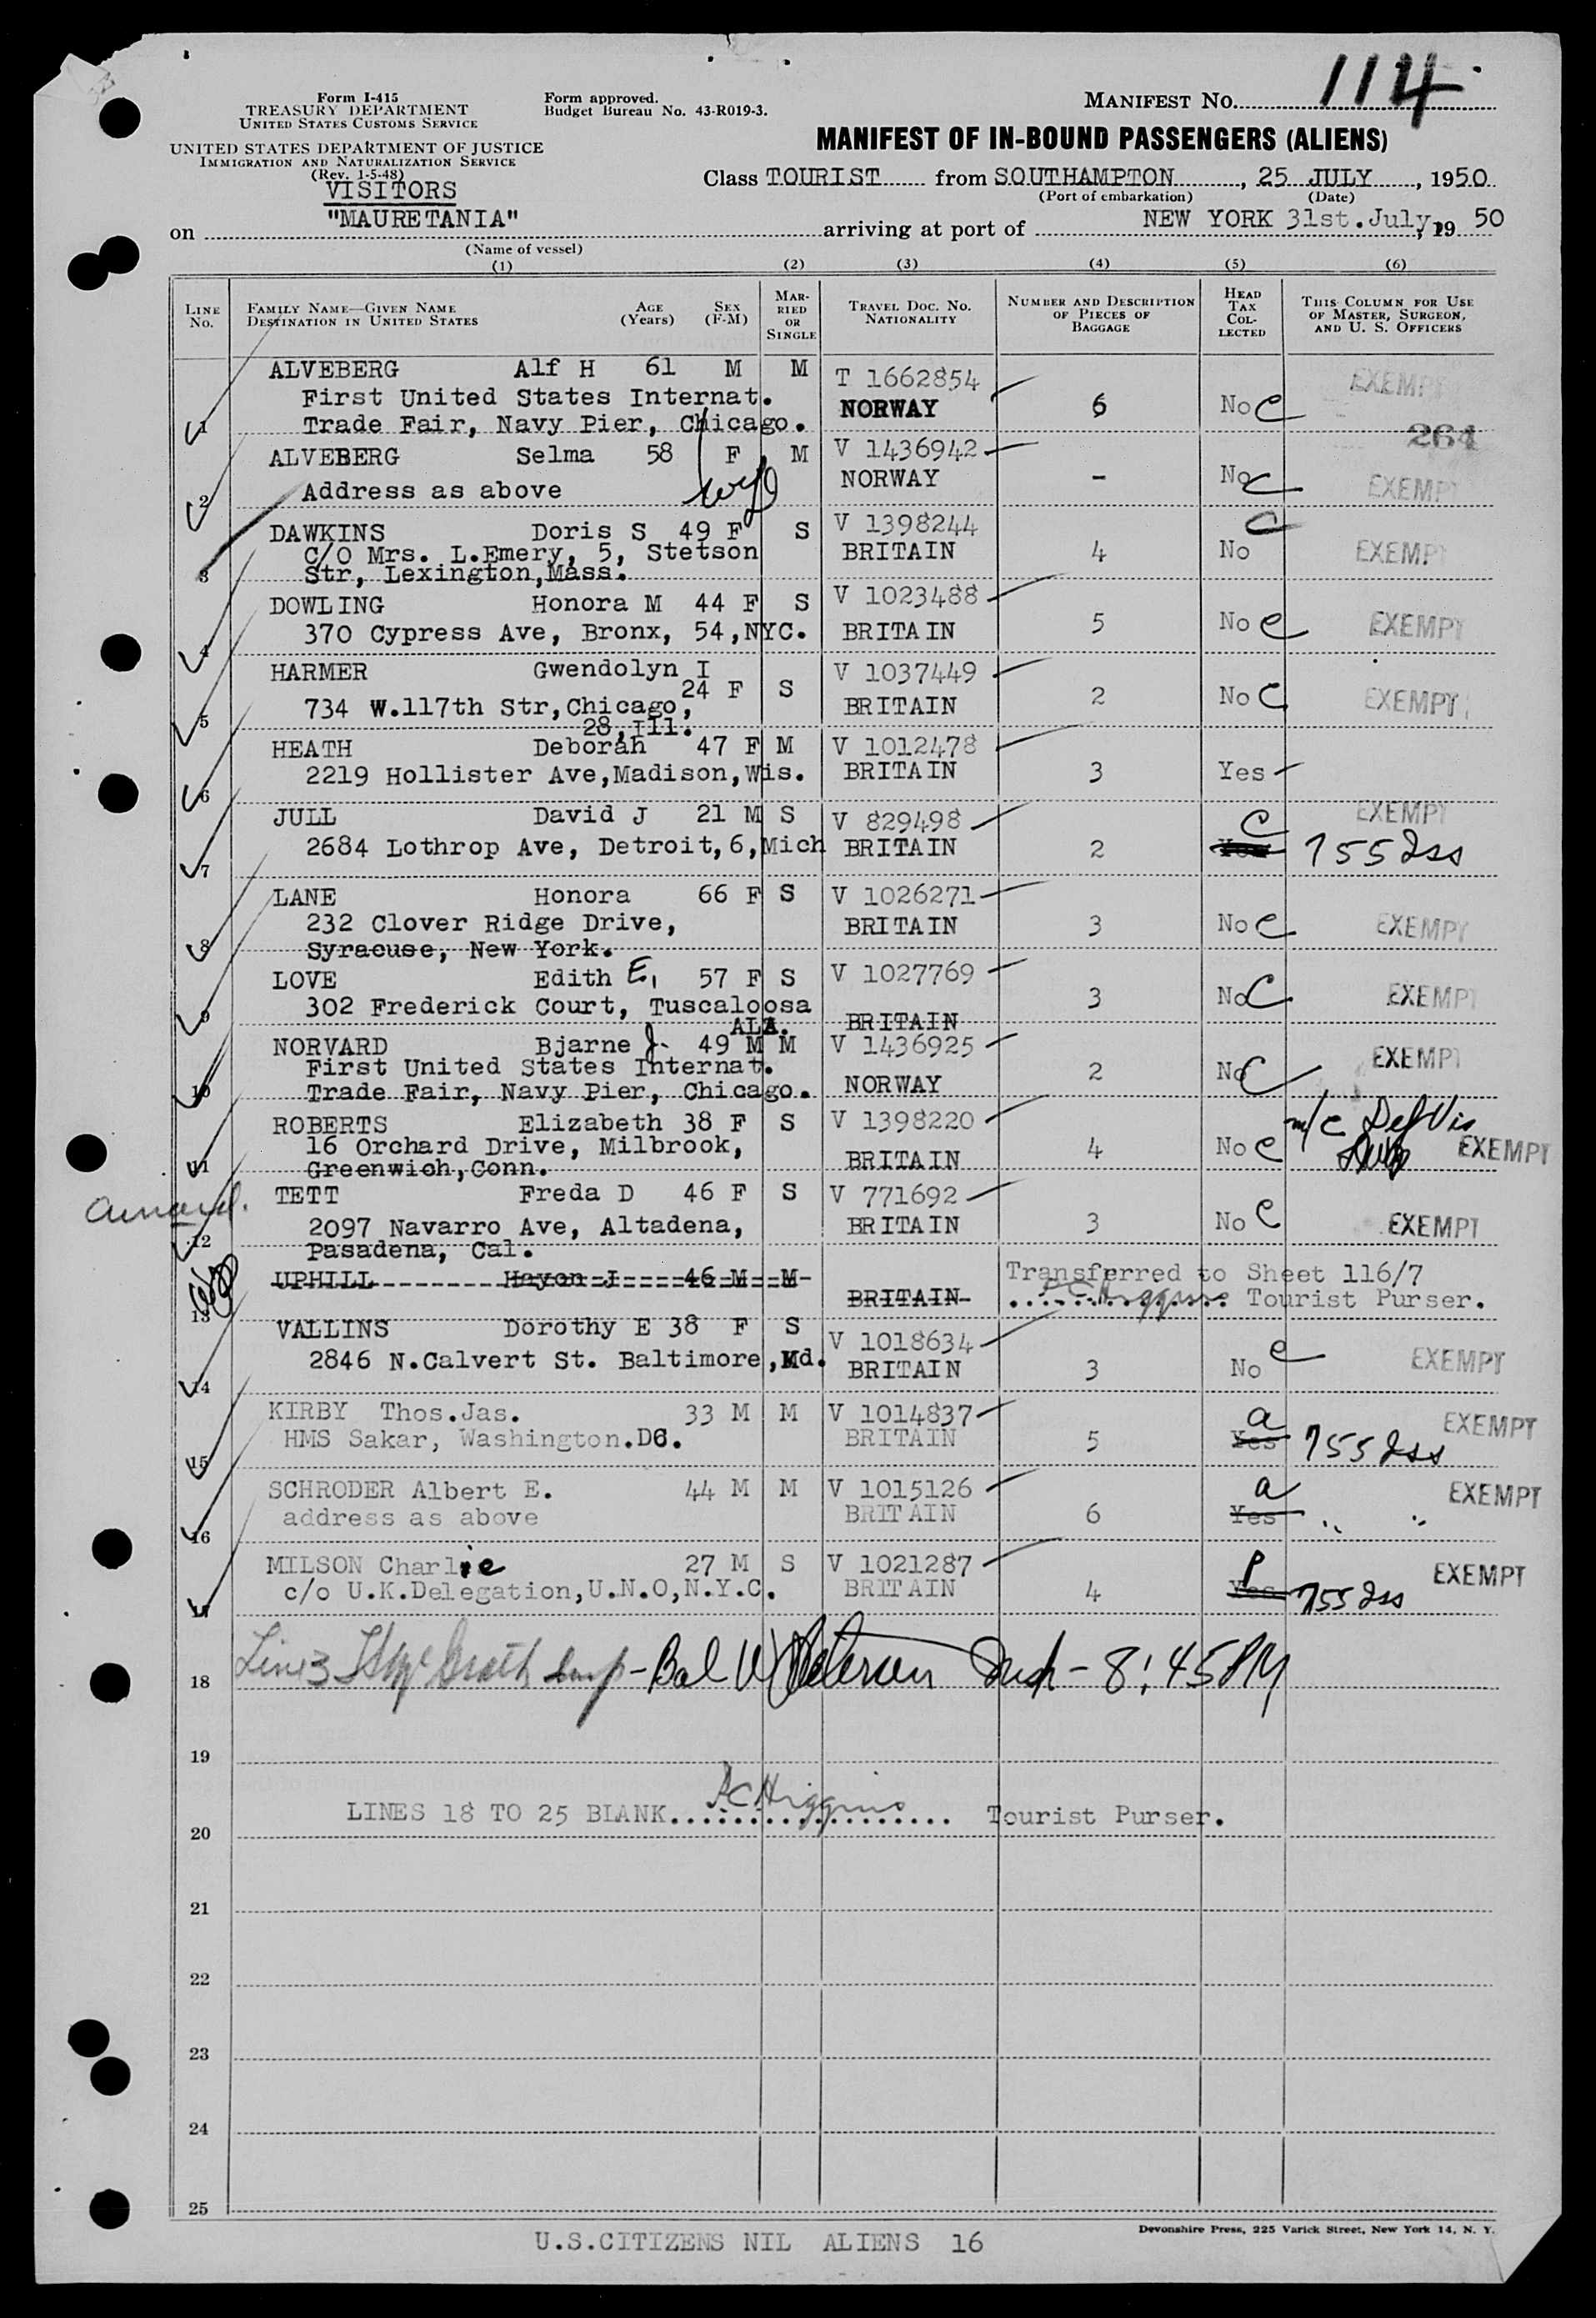 Form I-415
TREASURY DEPARTMENT
UNITED STATES CUSTOMS SERVICE
UNITED STATES DEPARTMENT OF JUSTICE
IMMIGRATION AND NATURALIZATION SERVICE
(Rev. 1-5-48)
Form approved.
Budget Bureau No. 43-R019-3.
MANIFEST NO. 114
MANIFEST OF IN-BOUND PASSENGERS (ALIENS)
VISITORS
Class TOURIST from SOUTHAMPTON, 25 JULY, 1950
(Port of embarkation) (Date)
on "MAURETANIA" arriving at port of NEW YORK 31st.July, 19 50
(Name of vessel)
(1) (2) (3) (4) (5) (6)
LINE No. FAMILY NAME—GIVEN NAME DESTINATION IN UNITED STATES AGE (Years) SEX (F-M) MARRIED OR SINGLE TRAVEL DOC. NO. NATIONALITY NUMBER AND DESCRIPTION OF PIECES OF BAGGAGE HEAD TAX COLLECTED THIS COLUMN FOR USE OF MASTER, SURGEON, AND U. S. OFFICERS
1 ALVEBERG Alf H 61 M M T 1662854 EXEMPT
First United States Internat. NORWAY 6 No C
Trade Fair, Navy Pier, Chicago. 264
2 ALVEBERG Selma 58 F M V 1436942
Address as above wife NORWAY - No C EXEMPT
3 DAWKINS Doris S 49 F S V 1398244 C
C/O Mrs. L.Emery, 5, Stetson BRITAIN 4 No EXEMPT
Str, Lexington,Mass.
4 DOWLING Honora M 44 F S V 1023488
370 Cypress Ave, Bronx, 54,NYC. BRITAIN 5 No C EXEMPT
5 HARMER Gwendolyn I V 1037449
24 F S
734 W.117th Str,Chicago, BRITAIN 2 No C EXEMPT
28,Ill.
6 HEATH Deborah 47 F M V 1012478
2219 Hollister Ave,Madison,Wis. BRITAIN 3 Yes
7 JULL David J 21 M S V 829498 C EXEMPT
2684 Lothrop Ave, Detroit,6,Mich BRITAIN 2 Yes 755 Iss
8 LANE Honora 66 F S V 1026271
232 Clover Ridge Drive, BRITAIN 3 No C EXEMPT
Syracuse, New York.
9 LOVE Edith E. 57 F S V 1027769
302 Frederick Court, Tuscaloosa 3 No C EXEMPT
ALA. BRITAIN
10 NORVARD Bjarne J. 49 M M V 1436925 EXEMPT
First United States Internat. 2 No C
Trade Fair, Navy Pier, Chicago. NORWAY
11 ROBERTS Elizabeth 38 F S V 1398220 m/c Def Vis
16 Orchard Drive, Milbrook, BRITAIN 4 No C EXEMPT
Greenwich,Conn.
12 TETT Freda D 46 F S V 771692
2097 Navarro Ave, Altadena, BRITAIN 3 No C EXEMPT
Pasadena, Cal.
13 UPHILL Hayon J 46 M M Transferred to Sheet 116/7
BRITAIN P C Higgins Tourist Purser.
14 VALLINS Dorothy E 38 F S V 1018634
2846 N.Calvert St. Baltimore,Md. BRITAIN 3 No C EXEMPT
15 KIRBY Thos.Jas. 33 M M V 1014837 a EXEMPT
HMS Sakar, Washington.DC. BRITAIN 5 Yes 755 Iss
16 SCHRODER Albert E. 44 M M V 1015126 a EXEMPT
address as above BRITAIN 6 Yes " "
17 MILSON Charlie 27 M S V 1021287 P EXEMPT
c/o U.K.Delegation,U.N.O,N.Y.C. BRITAIN 4 Yes 755 Iss
18 Line 3 Insp - Bal W Peterson Insp - 8:45 PM
19
LINES 18 TO 25 BLANK P C Higgins Tourist Purser.
20
21
22
23
24
25
Devonshire Press, 225 Varick Street, New York 14, N. Y.
U.S.CITIZENS NIL ALIENS 16